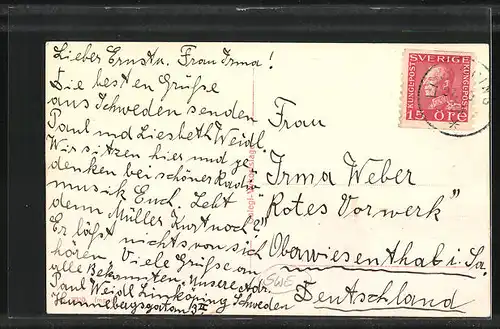 Lieber Ernst u. Frau Irma!
Die besten Grüße
aus Schweden senden
Paul und Liesbeth Weidl.
Wir sitzen hier und ge-
denken bei schöner Radio-
musik Euch. Lebt
denn Müller Kurt noch?
Er läßt nichts von sich
hören. Viele Grüße an
alle Bekannten. Unsere Adr.
Paul Weidl Linköping Schweden
SWE
SVERIGE
KUNGSPOST KUNGSPOST
15 ÖRE
Frau
Irma Weber
"Rotes Vorwerk"
Oberwiesenthal i. Sa.
Deutschland